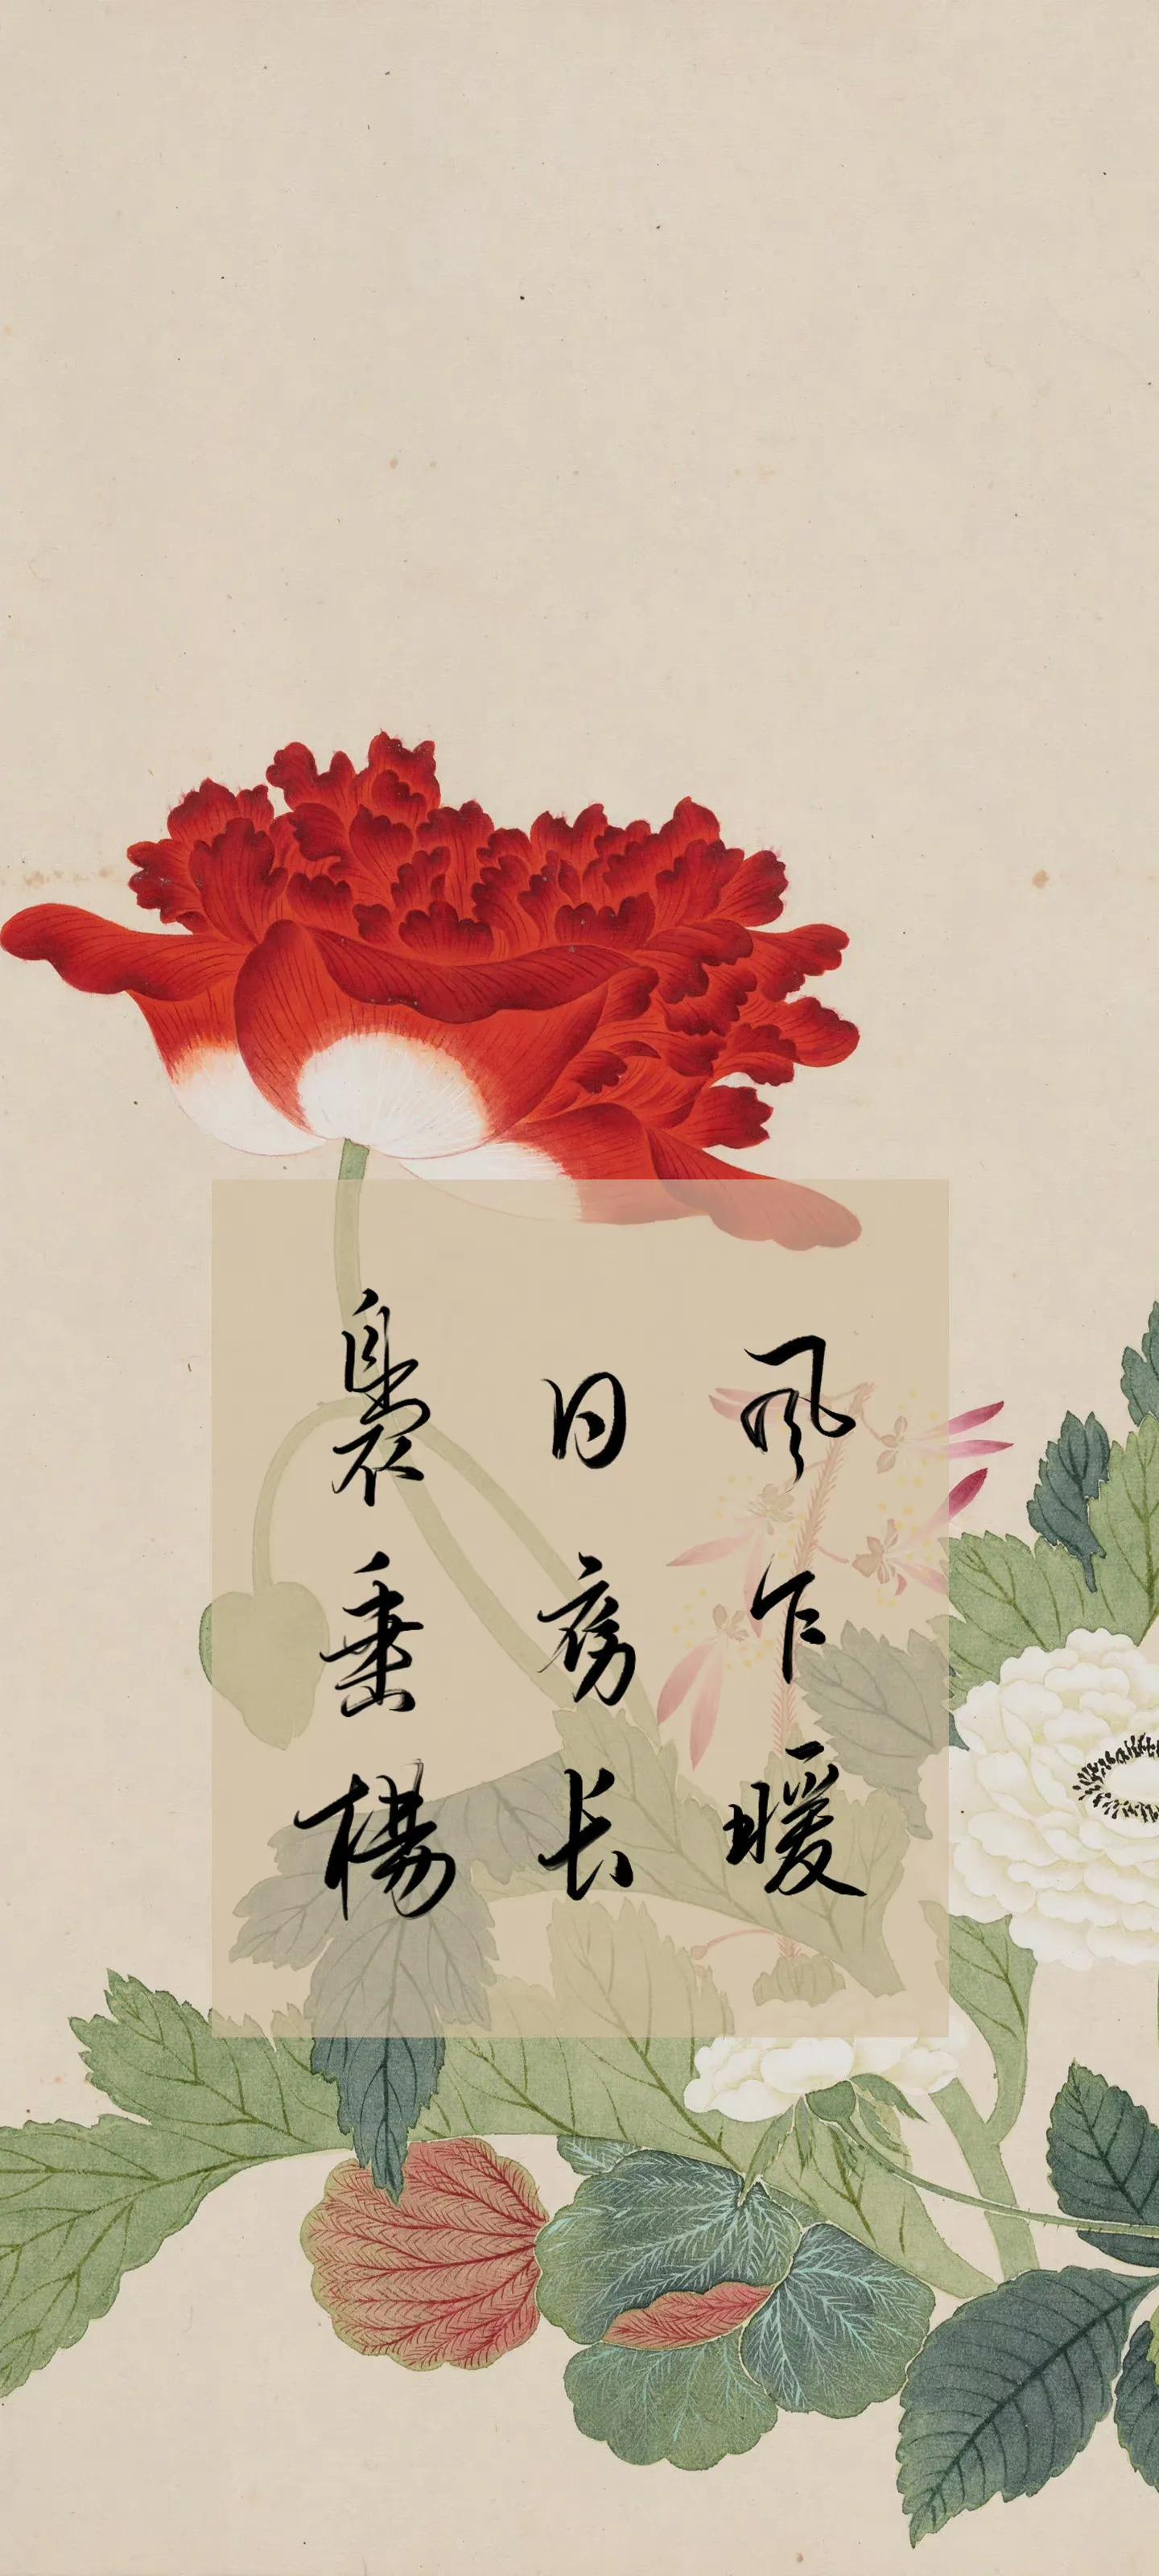 风乍暖
日初长
袅垂杨